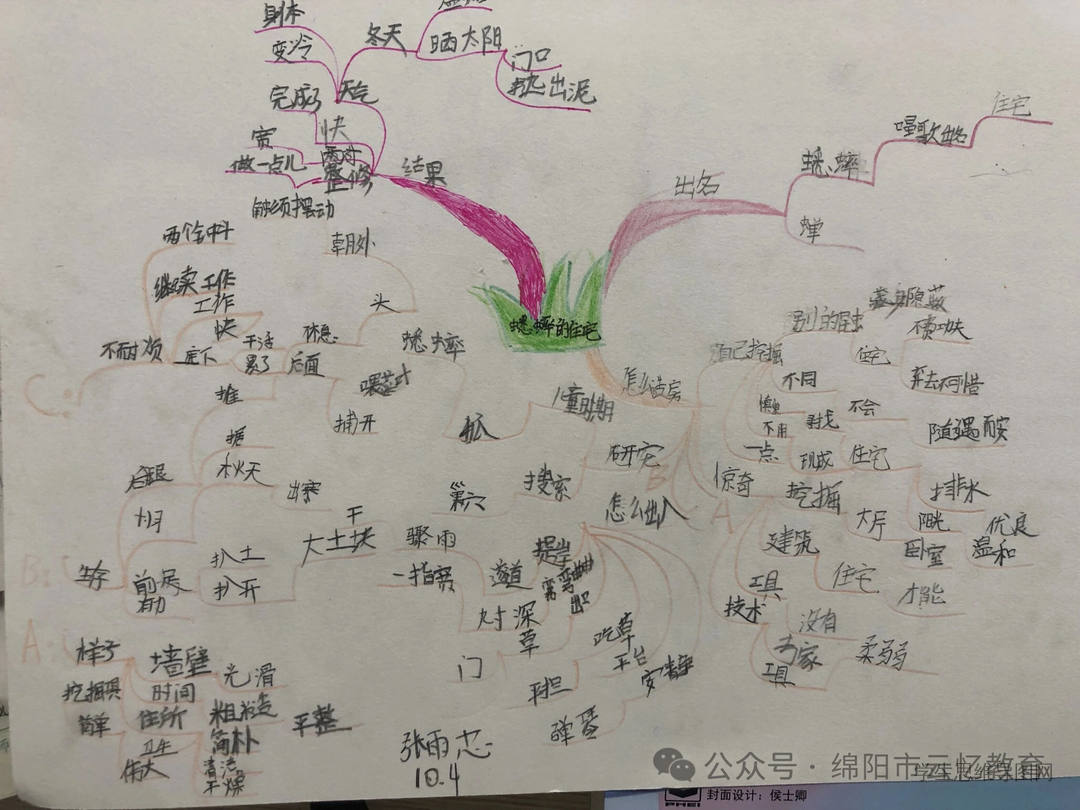 蟋蟀的住宅
出名
蟋蟀
唱歌出名
住宅
蝉
怎么造房
自己挖掘
别的昆虫
藏身隐蔽
住宅
不费功夫
弃去不可惜
不同
不用
不会
一点
现成
住宅
随遇而安
排水
阳光
优良
温和
惊奇
挖掘
大厅
卧室
建筑
住宅
才能
工具
技术
没有
专家
工具
柔弱
儿童时期
研究
搜索
怎么出入
隧道
弯弯曲曲
出口
骤雨
一指宽
寸深
草
门
吃草
平台
安静
平坦
弹琴
结果
天气
冬天
晒太阳
门口
抛出泥
变冷
完成了
快
宽
做一点儿
整修
触须摆动
朝外
头
两个钟头
继续工作
工作
快
不耐烦
底下
干活
累了
休息
后面
蟋蟀
推
捕
开
抓
秋天
出赛
干
大土块
十月
前足
扒土
扒开
样子
墙壁
光滑
时间
简单
住所
粗糙
平整
简朴
卫生
伟大
清洁
干燥
B:
A:
C:
B
A
张雨忠
10.4
公众号 · 绵阳市元忆教育
学生思维导图网
封面设计：侯士卿
PHEI